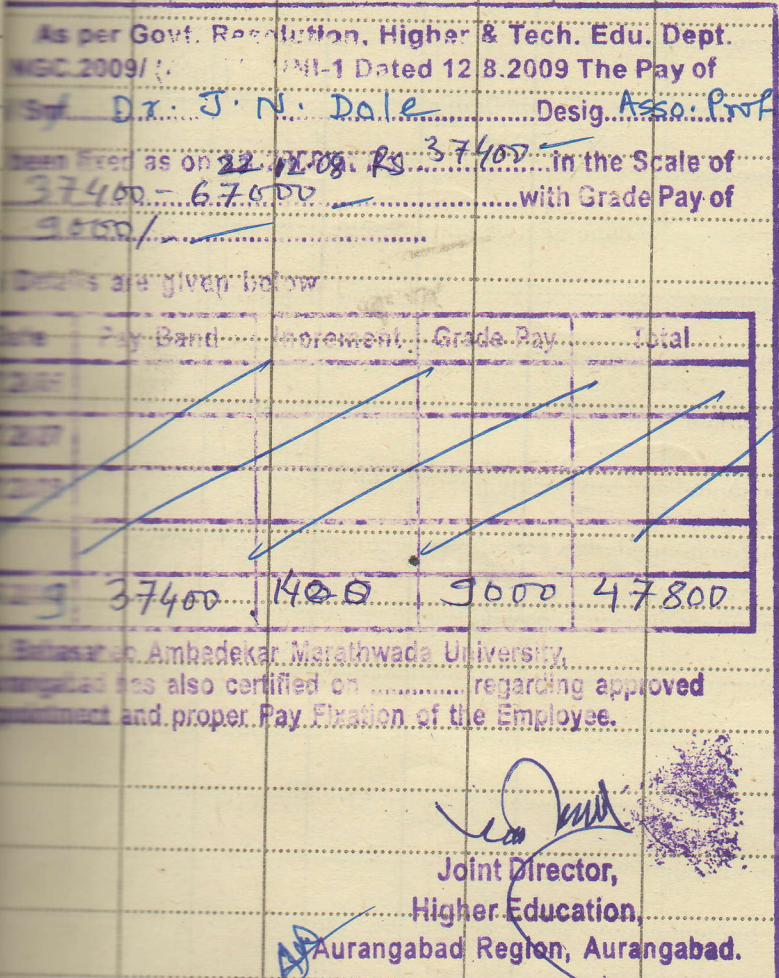 As per Govt. Resolution, Higher & Tech. Edu. Dept.
NGC.2009/ UNI-1 Dated 12.8.2009 The Pay of
Dr. J. N. Dale Desig. Asso. Prof
been fixed as on 22.12.08 Rs 37400 in the Scale of
37400 - 67000 with Grade Pay of
9000/-
Details are given below
Date Pay Band Increment Grade Pay Total
9 37400 1400 9000 47800
Babasaheb Ambedekar Marathwada University,
has also certified on ............ regarding approved
and proper Pay Fixation of the Employee.
Joint Director,
Higher Education,
Aurangabad Region, Aurangabad.